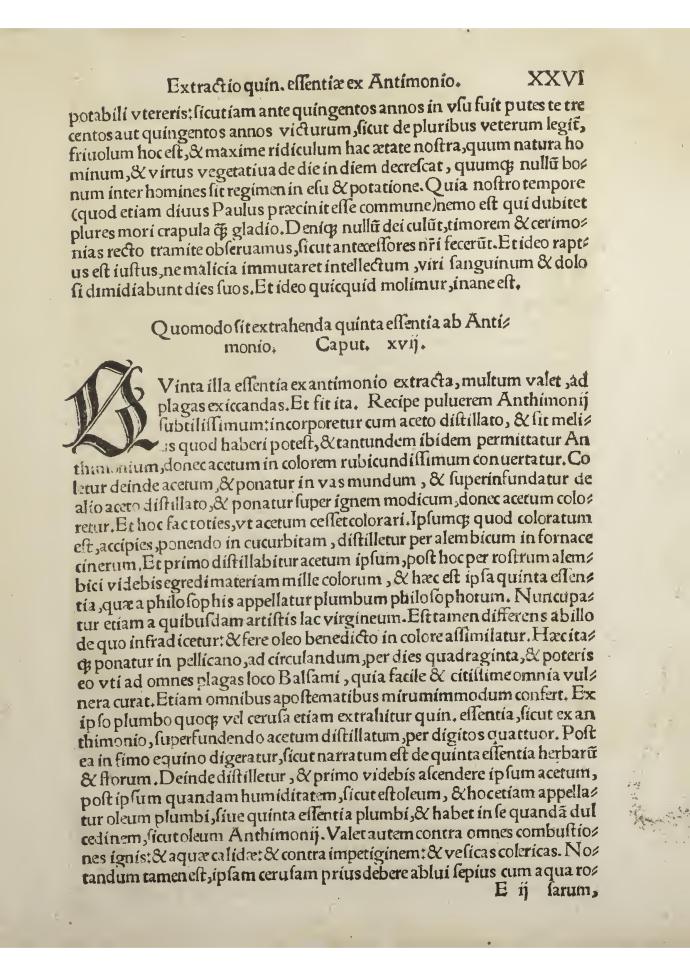 Extractio quin. eſſentiæ ex Antimonio. XXVI
potabili vtereris:ſicut iam ante quingentos annos in vſu fuit putes te tre
centos aut quingentos annos victurum,ſicut de pluribus veterum legit̃,
friuolum hoc eſt,& maxime ridiculum hac ætate noſtra,quum natura ho
minum,& virtus vegetatiua de die in diem decreſcat, quumq; nullũ bo⸗
num inter homines ſit regimen in eſu & potatione. Quia noſtro tempore
(quod etiam diuus Paulus præcinit eſſe commune)nemo eſt qui dubitet
plures mori crapula q̃ gladio. Deniq; nullũ dei culũt,timorem & cerimo⸗
nias recto tramite obſeruamus,ſicut anteceſſores nr̃i fecerũt. Et ideo rapt⸗
us eſt iuſtus,ne malicia immutaret intellectum ,viri ſanguinum & dolo
ſi dimidiabunt dies ſuos. Et ideo quicquid molimur,inane eſt.
Quomodo ſit extrahenda quinta eſſentia ab Anti⸗
monio. Caput. xvij.
QVinta illa eſſentia ex antimonio extracta,multum valet ,ad
plagas exiccandas. Et fit ita. Recipe puluerem Anthimonij
ſubtiliſſimum:incorporetur cum aceto diſtillato, & ſit meli⸗
is quod haberi poteſt,& tantundem ibidem permittatur An
thimonium,donec acetum in colorem rubicundiſſimum conuertatur. Co
letur deinde acetum,& ponatur in vas mundum , & ſuperinfundatur de
alio aceto diſtillato,& ponatur ſuper ignem modicum,donec acetum colo⸗
retur. Et hoc fac toties,vt acetum ceſſet colorari. Ipſumq; quod coloratum
eſt,accipies,ponendo in cucurbitam , diſtilletur per alembicum in fornace
cinerum. Et primo diſtillabitur acetum ipſum,poſt hoc per roſtrum alem⸗
bici videbis egredi materiam mille colorum , & hæc eſt ipſa quinta eſſen⸗
tia,quæ a philoſophis appellatur plumbum philoſophotum. Nuncupa⸗
tur etiam a quibuſdam artiſtis lac virgineum. Eſt tamen differens ab illo
de quo infra dicetur:& fere oleo benedicto in colore aſſimilatur. Hæc ita⸗
q; ponatur in pellicano,ad circulandum,per dies quadraginta,& poteris
eo vti ad omnes plagas loco Balſami , quia facile & citiſſime omnia vul⸗
nera curat. Etiam omnibus apoſtematibus mirum immodum confert. Ex
ipſo plumbo quoq; vel ceruſa etiam extrahitur quin. eſſentia,ſicut ex an
thimonio,ſuperfundendo acetum diſtillatum,per digitos quattuor. Poſt
ea in fimo equino digeratur,ſicut narratum eſt de quinta eſſentia herbarũ
& florum. Deinde diſtilletur , & primo videbis aſcendere ipſum acetum,
poſt ipſum quandam humiditatem,ſicut eſt oleum, & hoc etiam appella⸗
tur oleum plumbi,ſiue quinta eſſentia plumbi,& habet in ſe quandã dul
cedinem,ſicut oleum Anthimonij. Valet autem contra omnes combuſtio⸗
nes ignis:& aquæ calidæ:& contra impetiginem:& veſicas colericas. No⸗
tandum tamen eſt,ipſam ceruſam prius debere ablui ſepius cum aqua ro⸗
E ij ſarum,